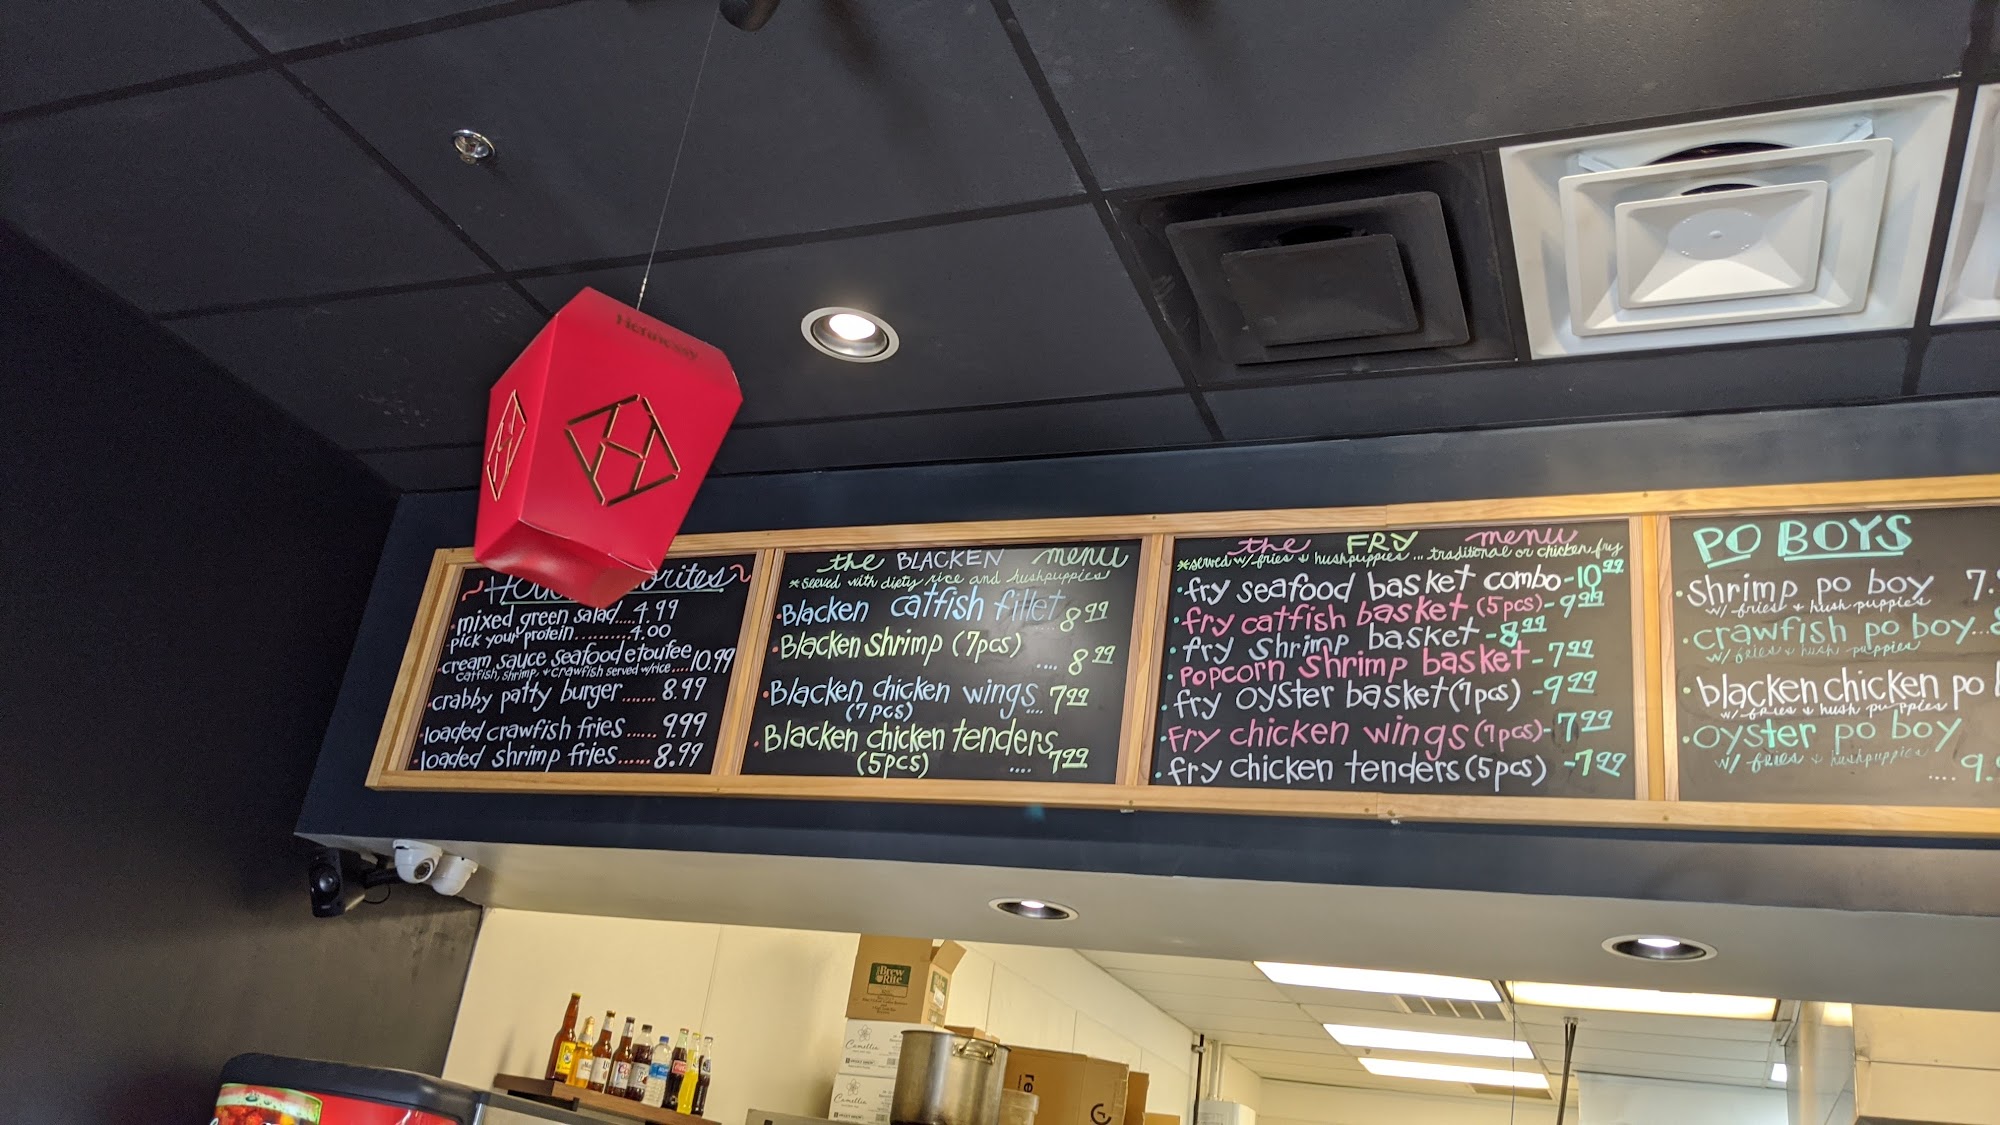 Hennessy
mixed green salad.....4.99
pick your protein.........4.00
cream sauce seafood etoufee
catfish, shrimp, + crawfish served w/rice....10.99
crabby patty burger.......8.99
loaded crawfish fries......9.99
loaded shrimp fries......8.99
the BLACKEN menu
*served with diety rice and hushpuppies
Blacken catfish fillet
....8.99
Blacken shrimp (7pcs)
....8.99
Blacken chicken wings
(7pcs) ....7.99
Blacken chicken tenders
(5pcs) ....7.99
the FRY menu
*served w/ fries & hushpuppies... traditional or chicken fry
fry seafood basket combo-10.99
fry catfish basket (5pcs)-9.99
fry shrimp basket-8.99
popcorn shrimp basket-7.99
fry oyster basket (7pcs)-9.99
fry chicken wings (7pcs)-7.99
fry chicken tenders (5pcs)-7.99
PO BOYS
shrimp po boy 7.
w/ fries + hush puppies
crawfish po boy...
w/ fries + hush puppies
blacken chicken po
w/ fries + hush puppies
oyster po boy
w/ fries + hushpuppies
....9.
Brew
Rite
Camellia
Camellia
re